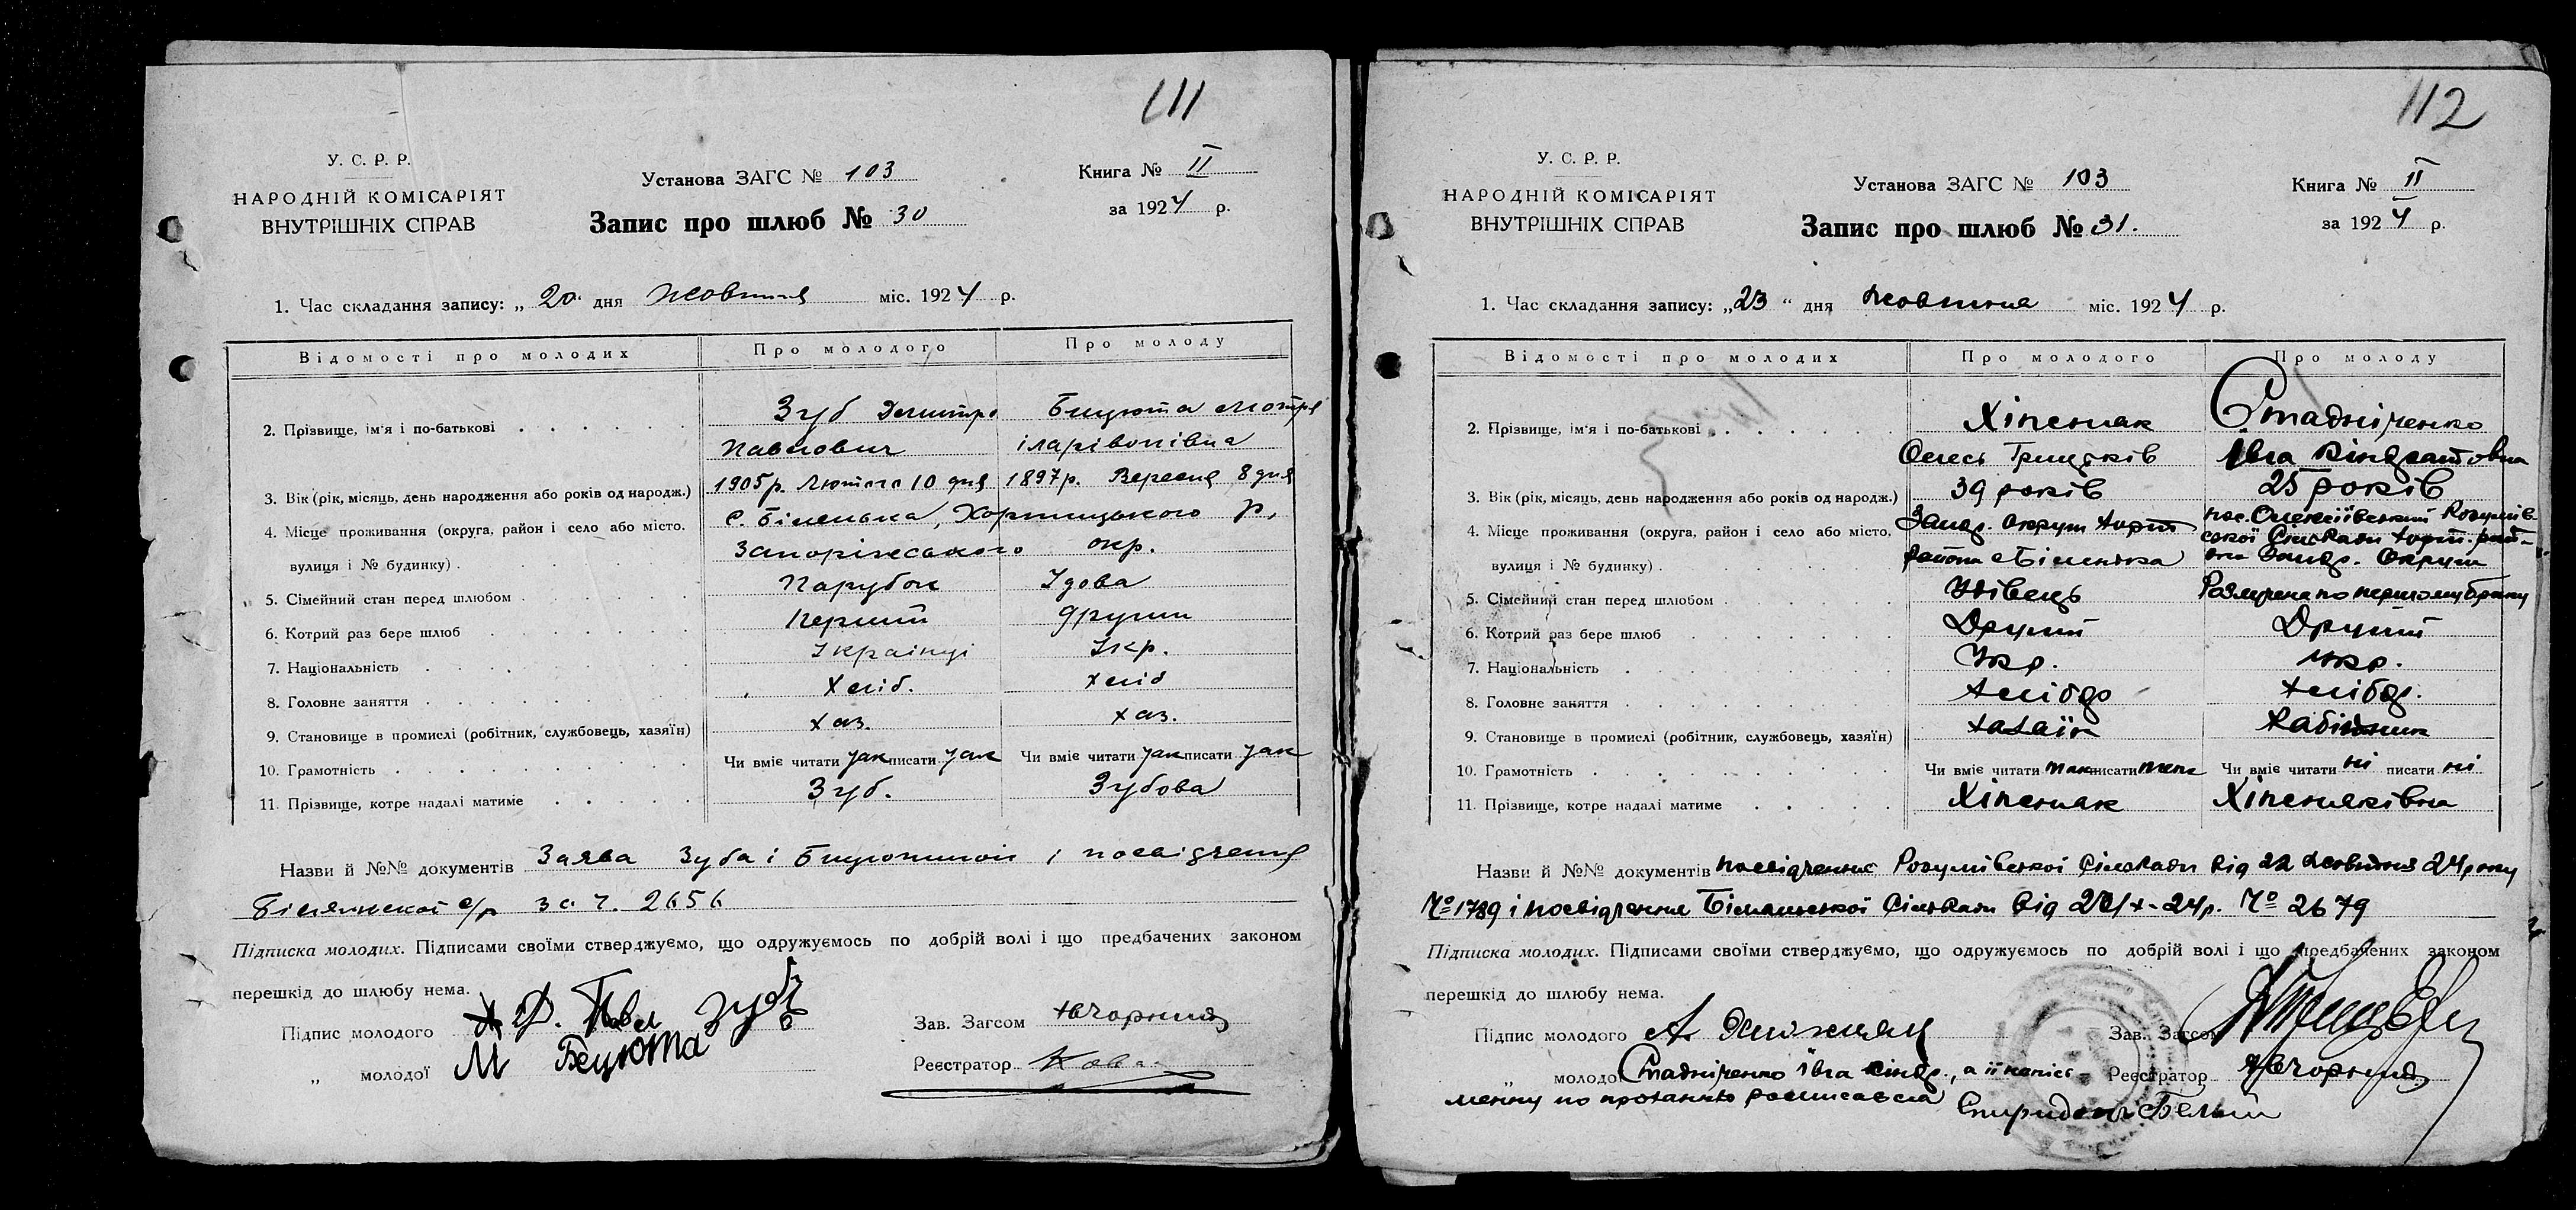 111
У. С. Р. Р.
НАРОДНІЙ КОМІСАРІЯТ
ВНУТРІШНІХ СПРАВ
Установа ЗАГС № 103
Запис про шлюб № 30
Книга № II
за 1924 р.
1. Час складання запису: „ 20 дня жовтня міс. 1924 р.
Відомості про молодих Про молодого Про молоду
2. Прізвище, ім'я і по-батькові Зуб Дмитро Бицюта Мотря
Павлович іларівонівна
3. Вік (рік, місяць, день народження або років од народж.) 1905 р. Лютого 10 дня 1897 р. Вересня 8 дня
4. Місце проживання (округа, район і село або місто. с. Біленька, Хортицького р,
вулиця і № будинку) Запоріжського окр.
5. Сімейний стан перед шлюбом Парубок Удова
6. Котрий раз бере шлюб перший другий
7. Національність Українці Укр.
8. Головне заняття Хліб. хліб
9. Становище в промислі (робітник, службовець, хазяїн) хаз. хаз.
10. Грамотність Чи вміє читати так писати так Чи вміє читати так писати так
11. Прізвище, котре надалі матиме Зуб. Зубова
Назви й №№ документів Заява Зуба і Бицютиної і посвідчення
Біленської с/р за ч. 2656
Підписка молодих. Підписами своїми стверджуємо, що одружуємось по добрій волі і що предбачених законом
перешкід до шлюбу нема.
Підпис молодого Д. Павл Зуб
Зав. Загсом
„ молодої М Бецюта
Реєстратор
112
У. С. Р. Р.
НАРОДНІЙ КОМІСАРІЯТ
ВНУТРІШНІХ СПРАВ
Установа ЗАГС № 103
Запис про шлюб № 31.
Книга № II
за 1924 р.
1. Час складання запису: „ 23 “ дня жовтня міс. 1924 р.
Відомості про молодих Про молодого Про молоду
2. Прізвище, ім'я і по-батькові Хіпеняк Стадніченко
Олесь Грицьків Ївга Кіндратовна
3. Вік (рік, місяць, день народження або років од народж.) 39 років 25 років
4. Місце проживання (округа, район і село або місто. Запор. округи Хорт. пос. Олексіївський Розумів
ської Сільради Хорт. рай-
вулиця і № будинку) района с Біленька она Запор. Округи
5. Сімейний стан перед шлюбом Удівець Розлучена по першому браку
6. Котрий раз бере шлюб Другий Другий
7. Національність Укр. Укр.
8. Головне заняття Хлібор Хлібор.
9. Становище в промислі (робітник, службовець, хазяїн) Хазаїн
10. Грамотність Чи вміє читати так писати так Чи вміє читати ні писати ні
11. Прізвище, котре надалі матиме Хіпеняк Хіпеняківна
Назви й №№ документів посвідчення Розумівської Сільради від 22 жовтня 24 року
№ 1789 і посвідчення Біленської Сільради від 22/X-24 р. № 2679
Підписка молодих. Підписами своїми стверджуємо, що одружуємось по добрій волі і що предбачених законом
перешкід до шлюбу нема.
Підпис молодого А.
Зав. Загсом
„ молодої Стадніченко Ївга Кіндр., а її непісь-
Реєстратор
менну по проханню росписався Спиридон Белый